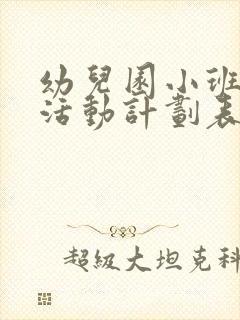 幼兒園小班
活動計劃表
超級大坦克科